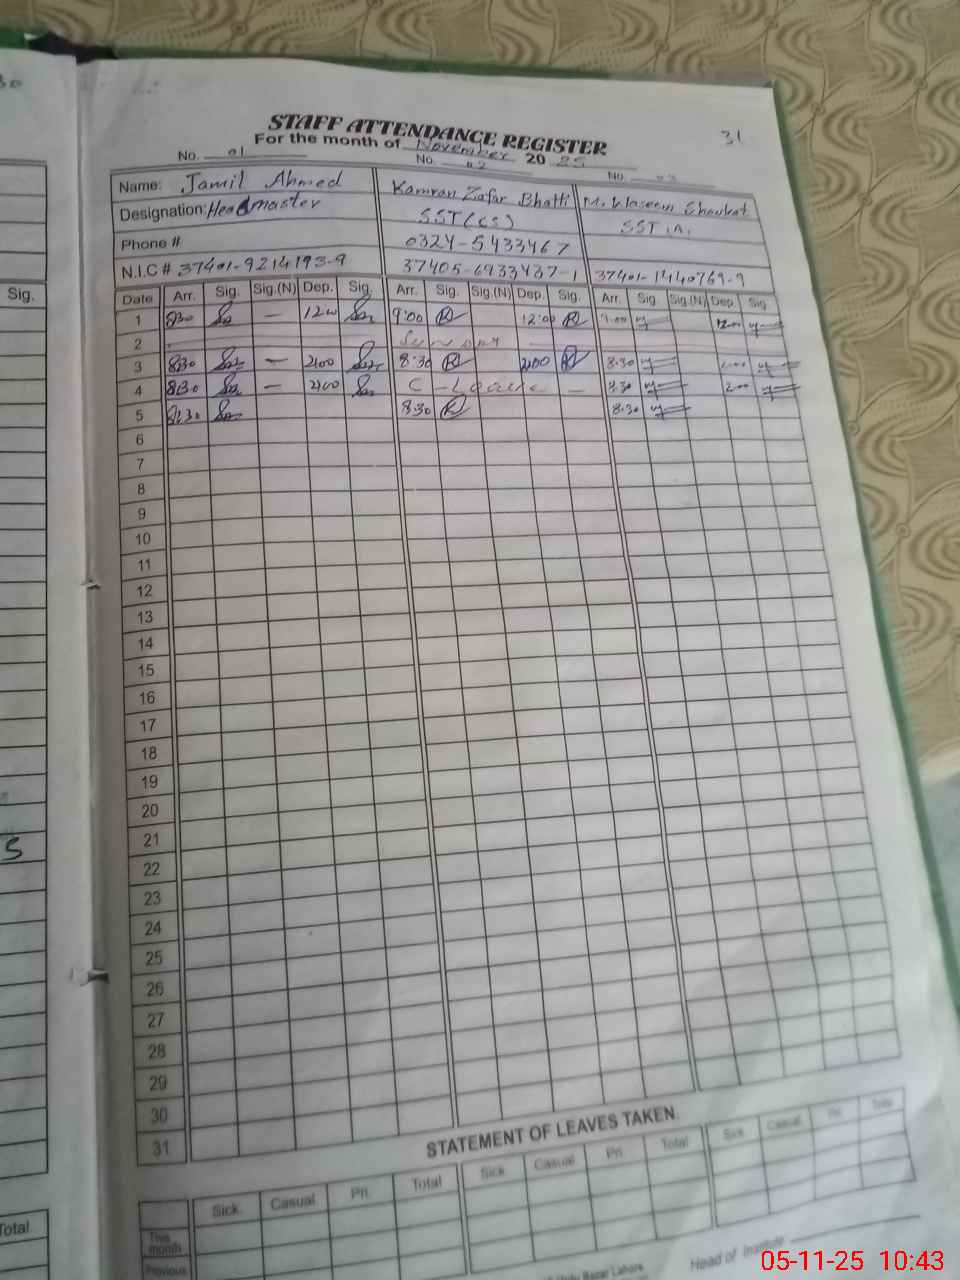 30
31
STAFF ATTENDANCE REGISTER
For the month of November 2025
No. 01 No. 02 No. 03
Name: Jamil Ahmed Kamran Zafar Bhatti M. Waseem Shoukat
Designation: Headmaster SST(CS) SST.A.
Phone # 0324-5433467
N.I.C # 37401-9214193-9 37405-6933437-1 37401-1440769-9
Sig.
Date Arr. Sig. Sig.(N) Dep. Sig. Arr. Sig. Sig.(N) Dep. Sig. Arr. Sig. Sig.(N) Dep. Sig.
1 830 — 1200 9:00 12:00 9.00 12.00
2 Sunday
3 830 — 2100 8:30 2100 8.30 2.00
4 830 — 2100 C-Leave — 8.30 2.00
5 8230 830 8.30
6
7
8
9
10
11
12
13
14
15
16
17
18
19
20
21
S
22
23
24
25
26
27
28
29
30
31
STATEMENT OF LEAVES TAKEN.
Sick. Casual Pri. Total Sick Casual Pri. Total Sick Casual Pri. Total
Total
This month
Previous
Head of Institute
Urdu Bazar Lahore
05-11-25 10:43